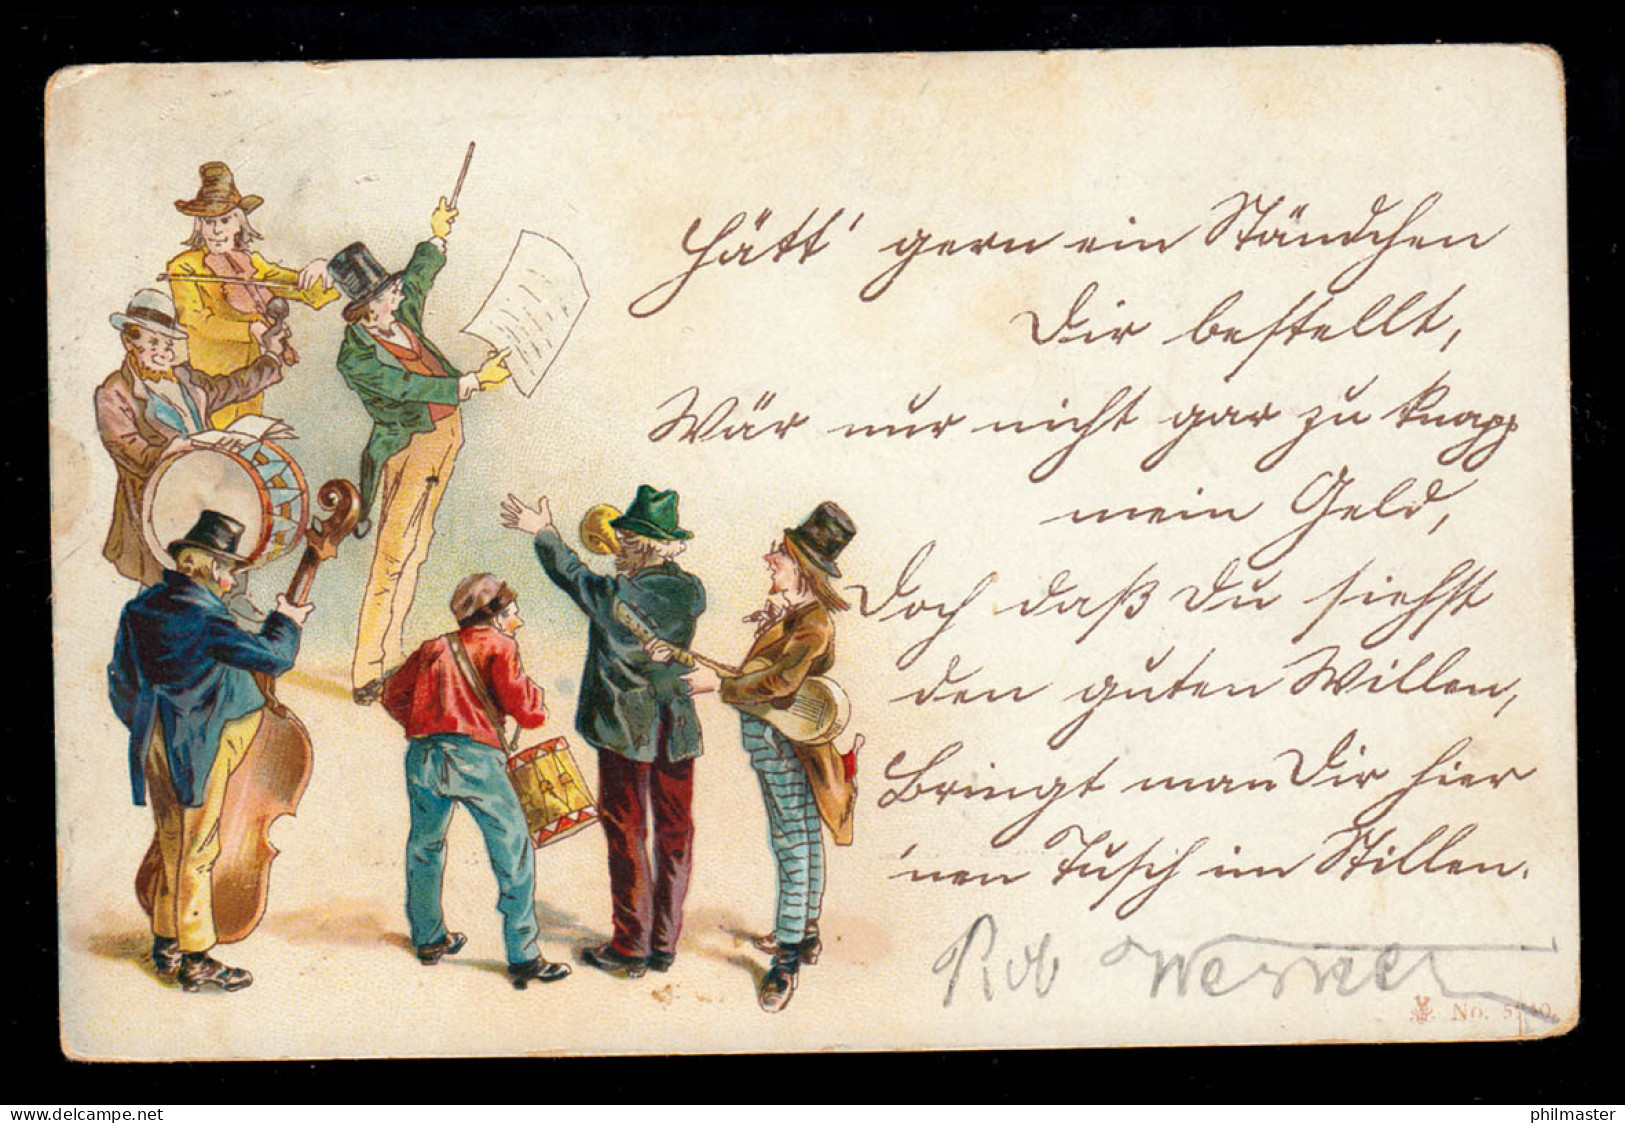 Hätt' gern ein Ständchen
Dir bestellt,
Wär nur nicht gar zu knapp
mein Geld,
Doch daß Du siehst
den guten Willen,
Bringt man Dir hier
'nen Tusch im Stillen.
Rob Werner
No.
delcampe.net
philmaster